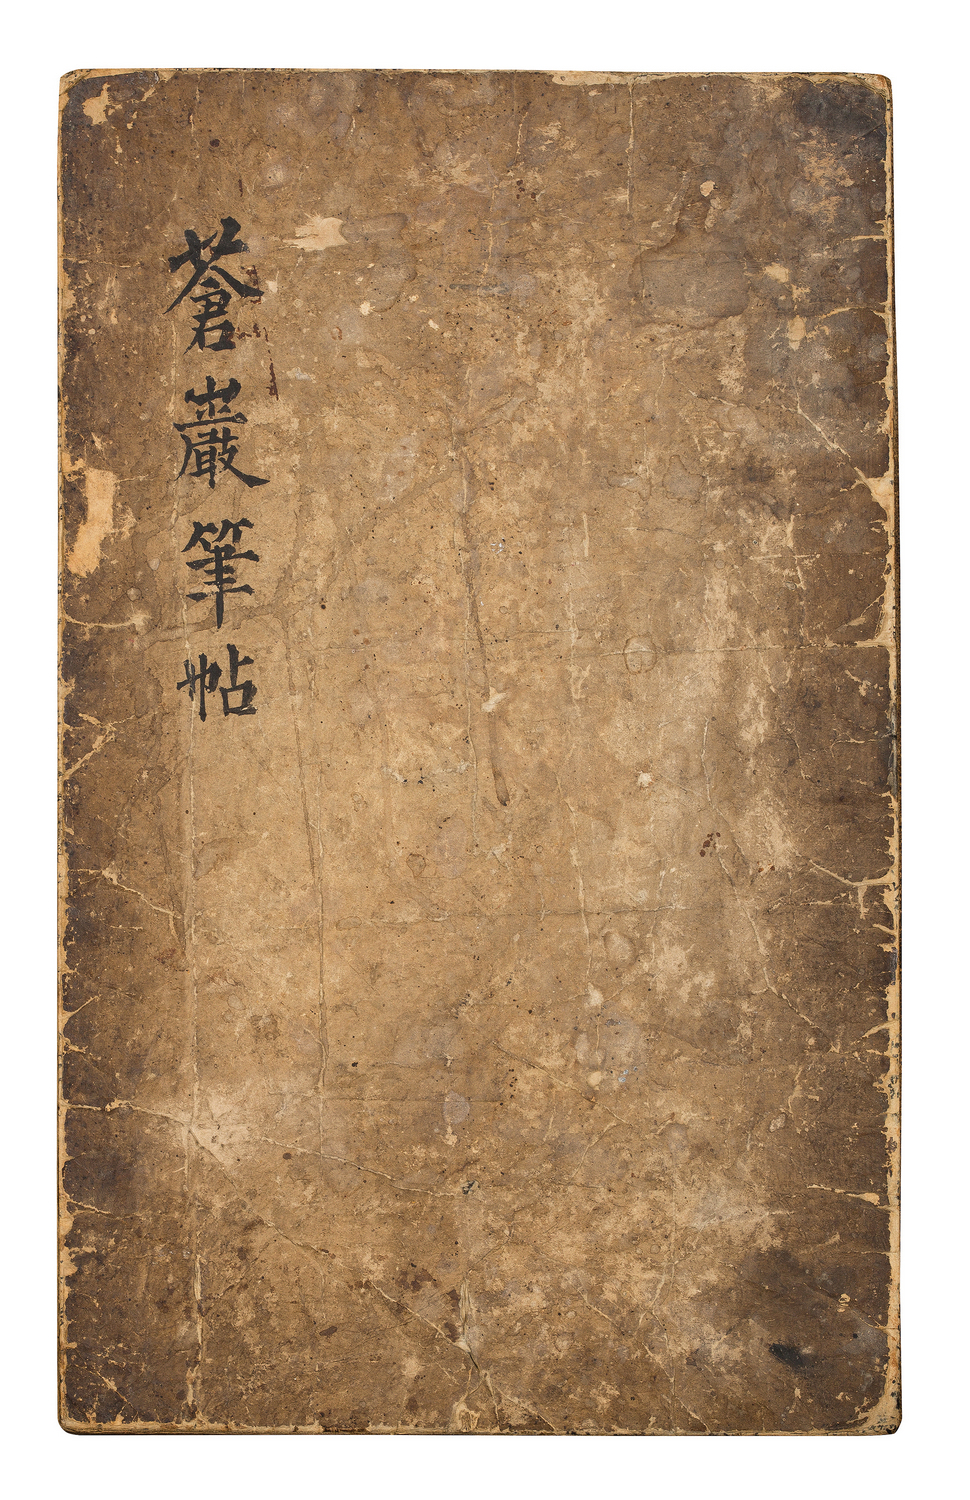 蒼巖筆帖